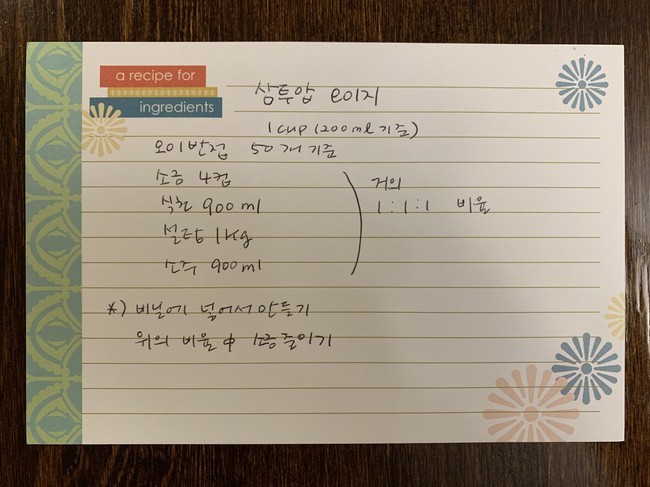 a recipe for
ingredients
삼투압 오이지
1 cup (200ml 기준)
오이 반접 50개 기준
소금 4컵
식초 900ml
설탕 1Kg
소주 900ml
거의
1:1:1 비율
*) 비닐에 넣어서 만들기
위의 비율 中 소금 줄이기